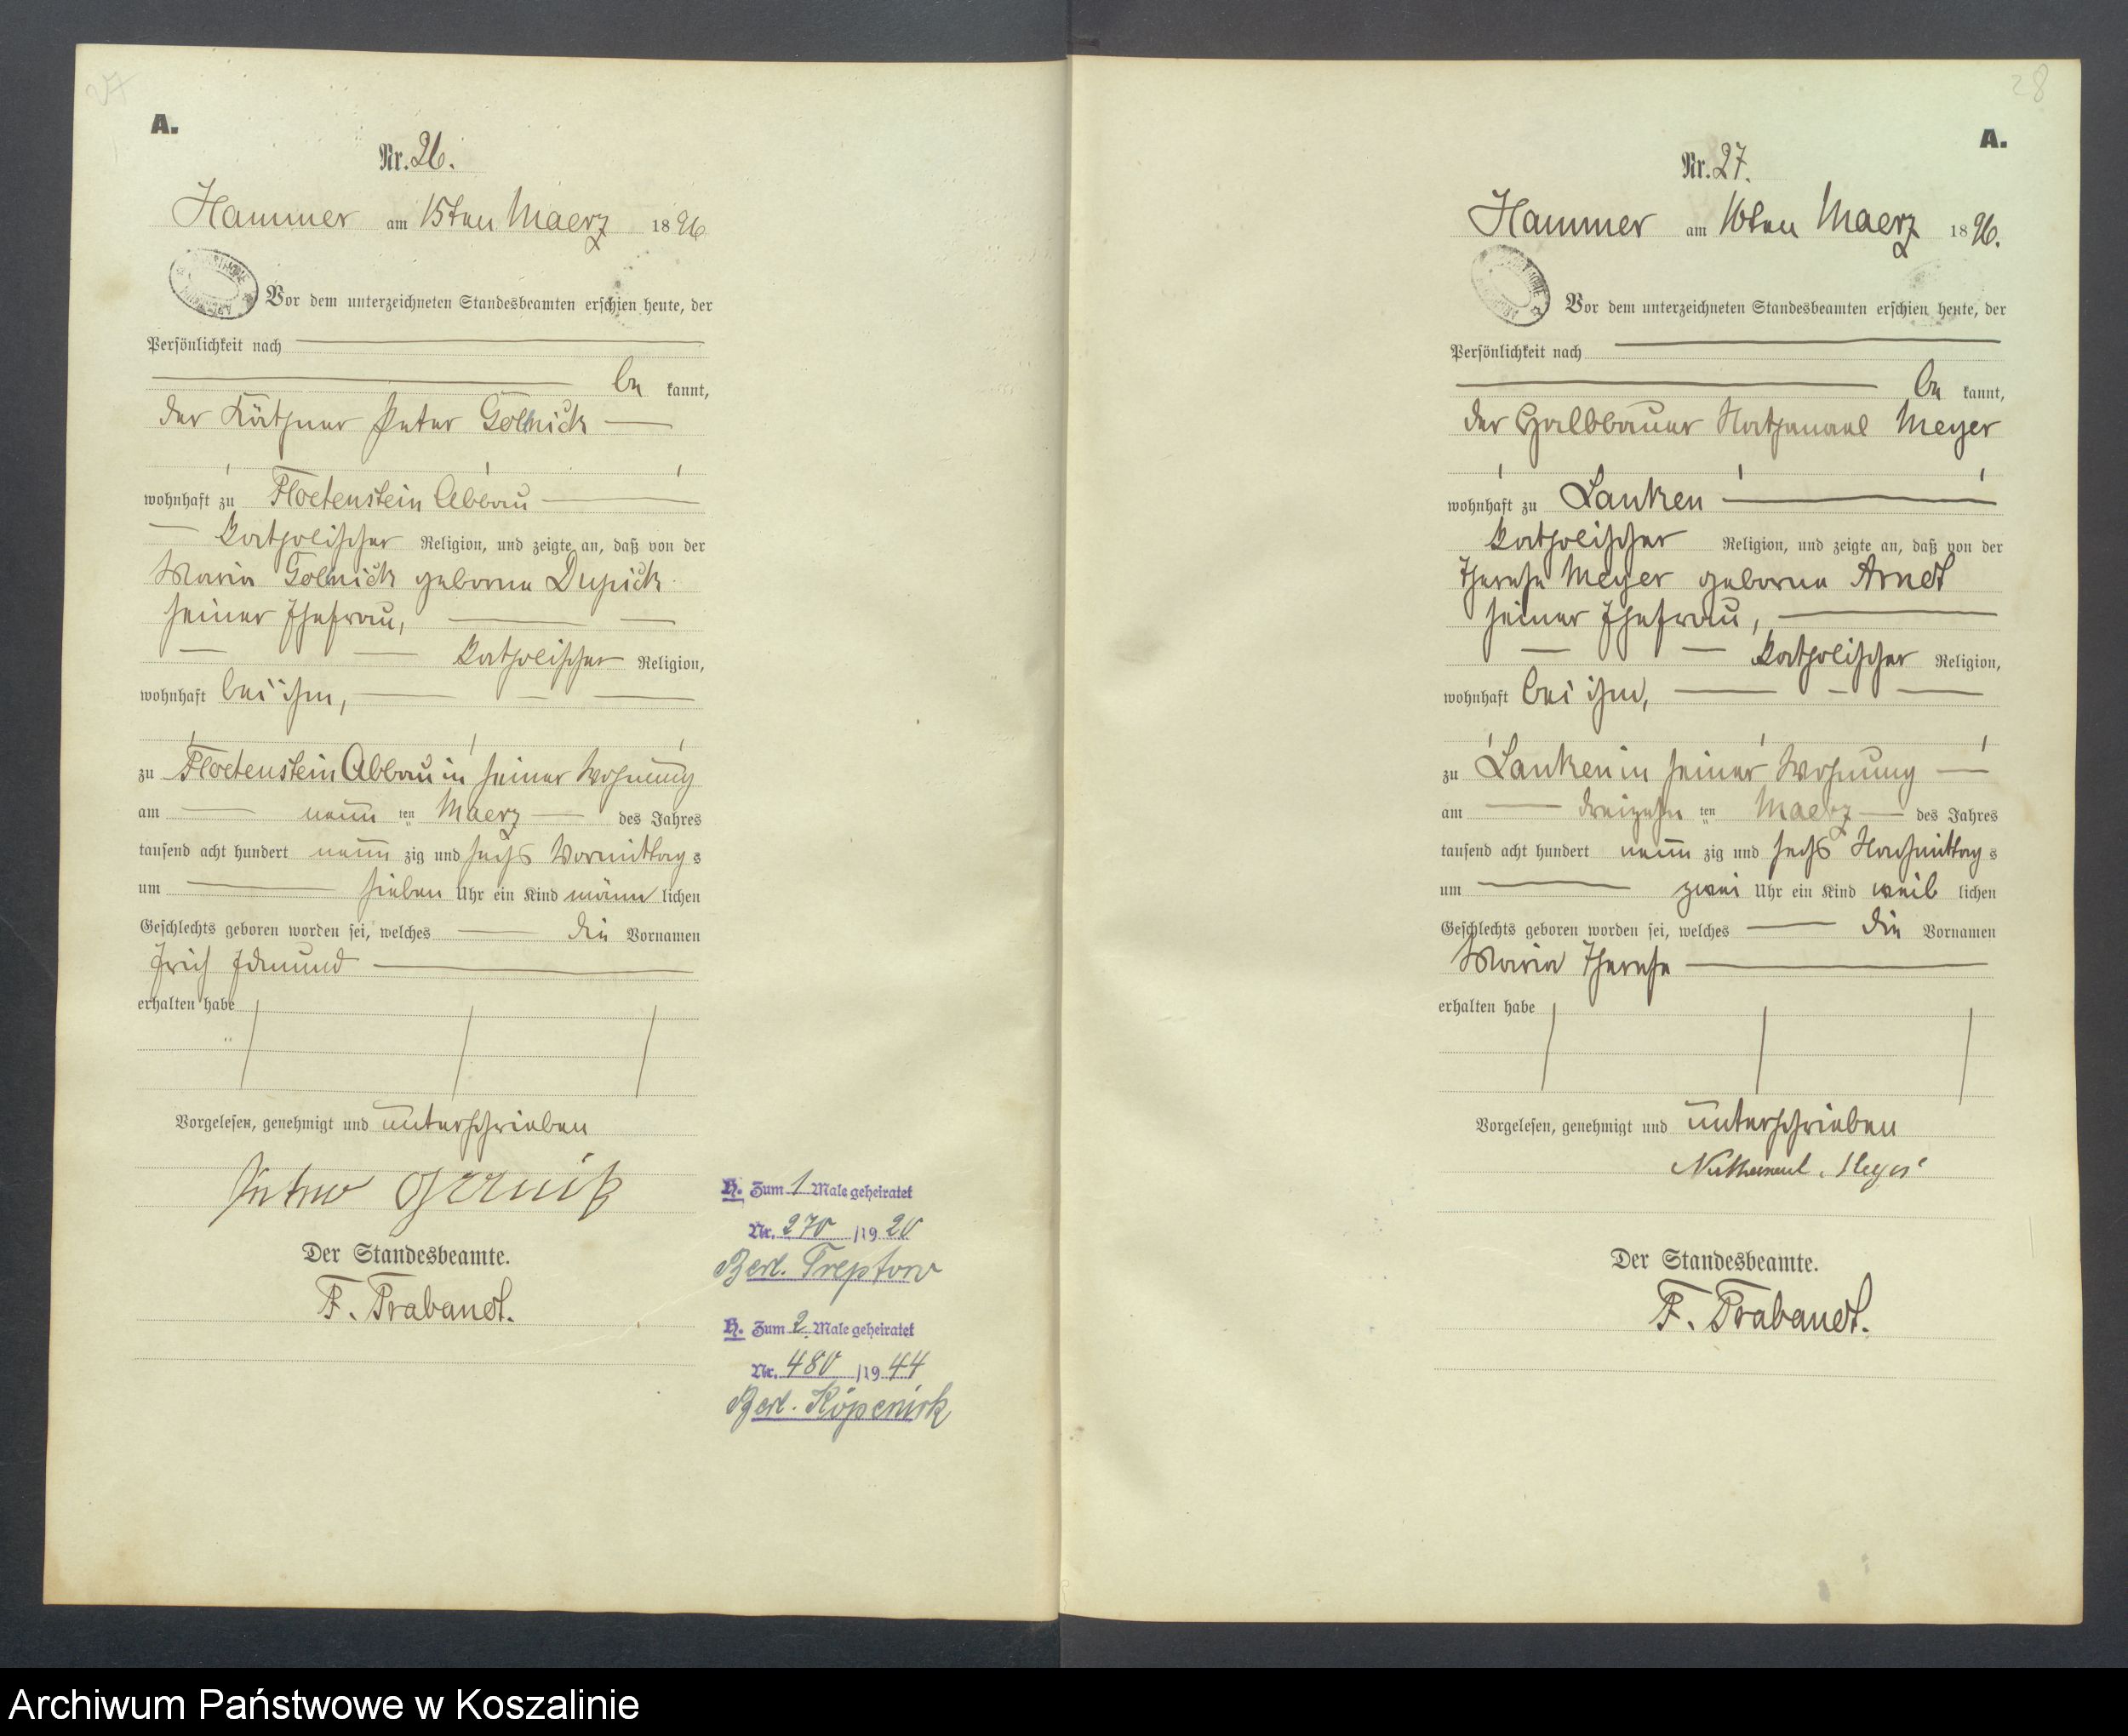 27
A.
Nr. 26.
Hammer am 15ten Maerz 1896
Vor dem unterzeichneten Standesbeamten erschien heute, der
Persönlichkeit nach
be kannt,
der Käthner Peter Golnick
wohnhaft zu Floetenstein Abbau
katholischer Religion, und zeigte an, daß von der
Maria Golnick geborne Dupick
seiner Ehefrau,
katholischer Religion,
wohnhaft bei ihm,
zu Floetenstein Abbau in seiner Wohnung
am neun ten Maerz des Jahres
tausend acht hundert neun zig und sechs Vormittag s
um sieben Uhr ein Kind männ lichen
Geschlechts geboren worden sei, welches die Vornamen
Erich Edmund
erhalten habe
Vorgelesen, genehmigt und unterschrieben
Der Standesbeamte.
F. Trabandt.
H. Zum 1 Male geheiratet
Nr. 270 /1920
Berl. Treptow
H. Zum 2. Male geheiratet
Nr. 480 /1944
Berl. Köpenick
28
A.
Nr. 27.
Hammer am 16ten Maerz 1896.
Vor dem unterzeichneten Standesbeamten erschien heute, der
Persönlichkeit nach
be kannt,
der Halbbauer Nathanael Meyer
wohnhaft zu Lanken
katholischer Religion, und zeigte an, daß von der
Therese Meyer geborne Arndt
seiner Ehefrau,
katholischer Religion,
wohnhaft bei ihm,
zu Lanken in seiner Wohnung
am dreizehn ten Maerz des Jahres
tausend acht hundert neun zig und sechs Nachmittag s
um zwei Uhr ein Kind weib lichen
Geschlechts geboren worden sei, welches die Vornamen
Maria Therese
erhalten habe
Vorgelesen, genehmigt und unterschrieben
Der Standesbeamte.
F. Trabandt.
Archiwum Państwowe w Koszalinie